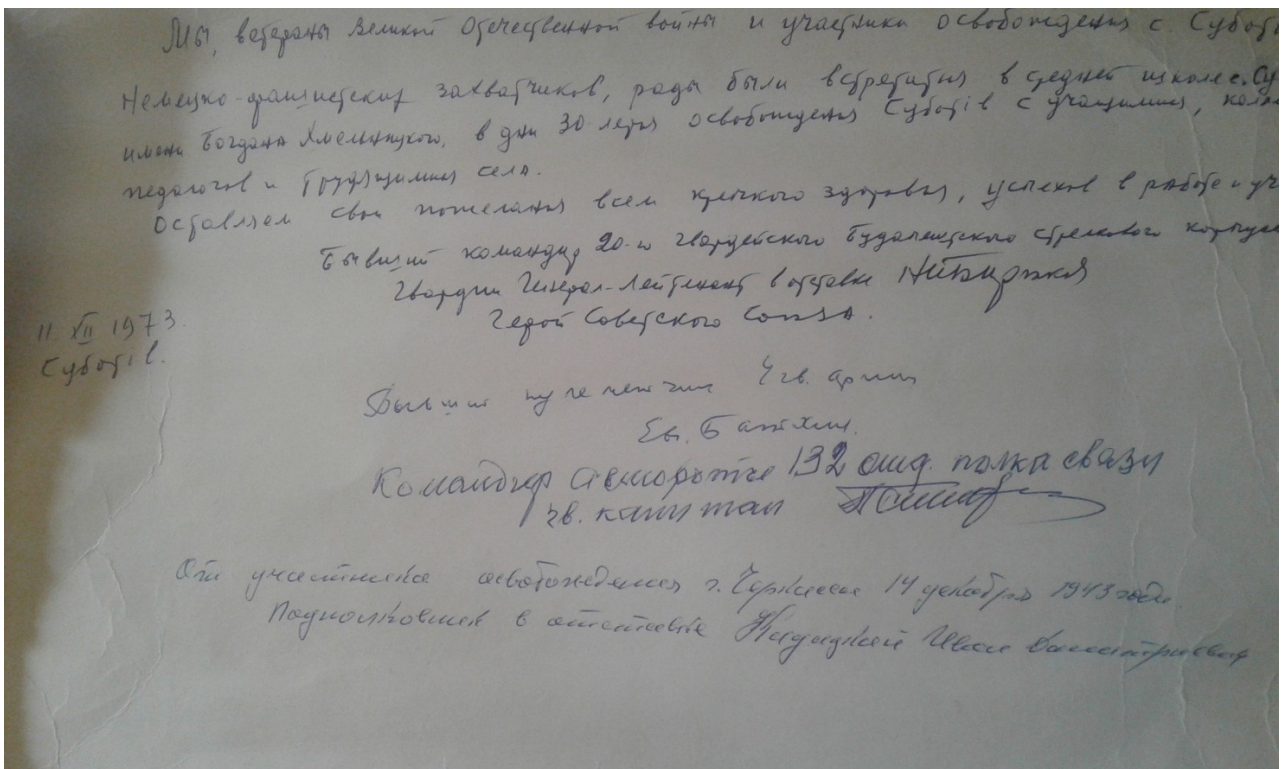 Мы, ветераны Великой Отечественной войны и участники освобождения с. Субот
Немецко-фашистских захватчиков, рады были встретится в средней школе с. Су
имени Богдана Хмельницкого, в дни 30-летия освобождения Суботів с учащимися, кол
педагогов и трудящимися села.
Оставляем свои пожелания всем крепкого здоровья, успехов в работе и уч
Бывший командир 20-го Гвардейского Будапештского стрелкового корпуса
Гвардии Генерал-Лейтенант в отставке НИБирюков
Герой Советского Союза.
11 XII 1973.
Суботів.
Бывший пулеметчик 4 гв. армии
Ев.
Командир автороты 192 полка связи
гв. капитан
От участника освобождения г. Черкассы 14 декабря 1943 года.
Подполковник в отставке Иван Дмитриевич